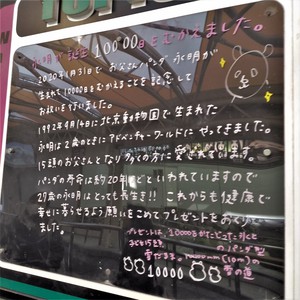 永明が誕生10000日をむかえました。
2020年1月31日でお父さんパンダ永明が
生まれて10000日をむかえることを記念して
お祝いを行いました。
1992年9月14日に北京動物園で生まれた
永明は2歳のときにアドベンチャーワールドにやってきました。
15頭のお父さんとなり多くの方に愛されています。
パンダの寿命は約20年ほどといわれていますので
27歳の永明はとっても長生き!! これからも健康で
幸せに暮らせるよう願いをこめてプレゼントをおくり
ました。
プレゼントは 10000日
のパンダ型
雪だるまと 10000mm(10m)の
雪の道
10000